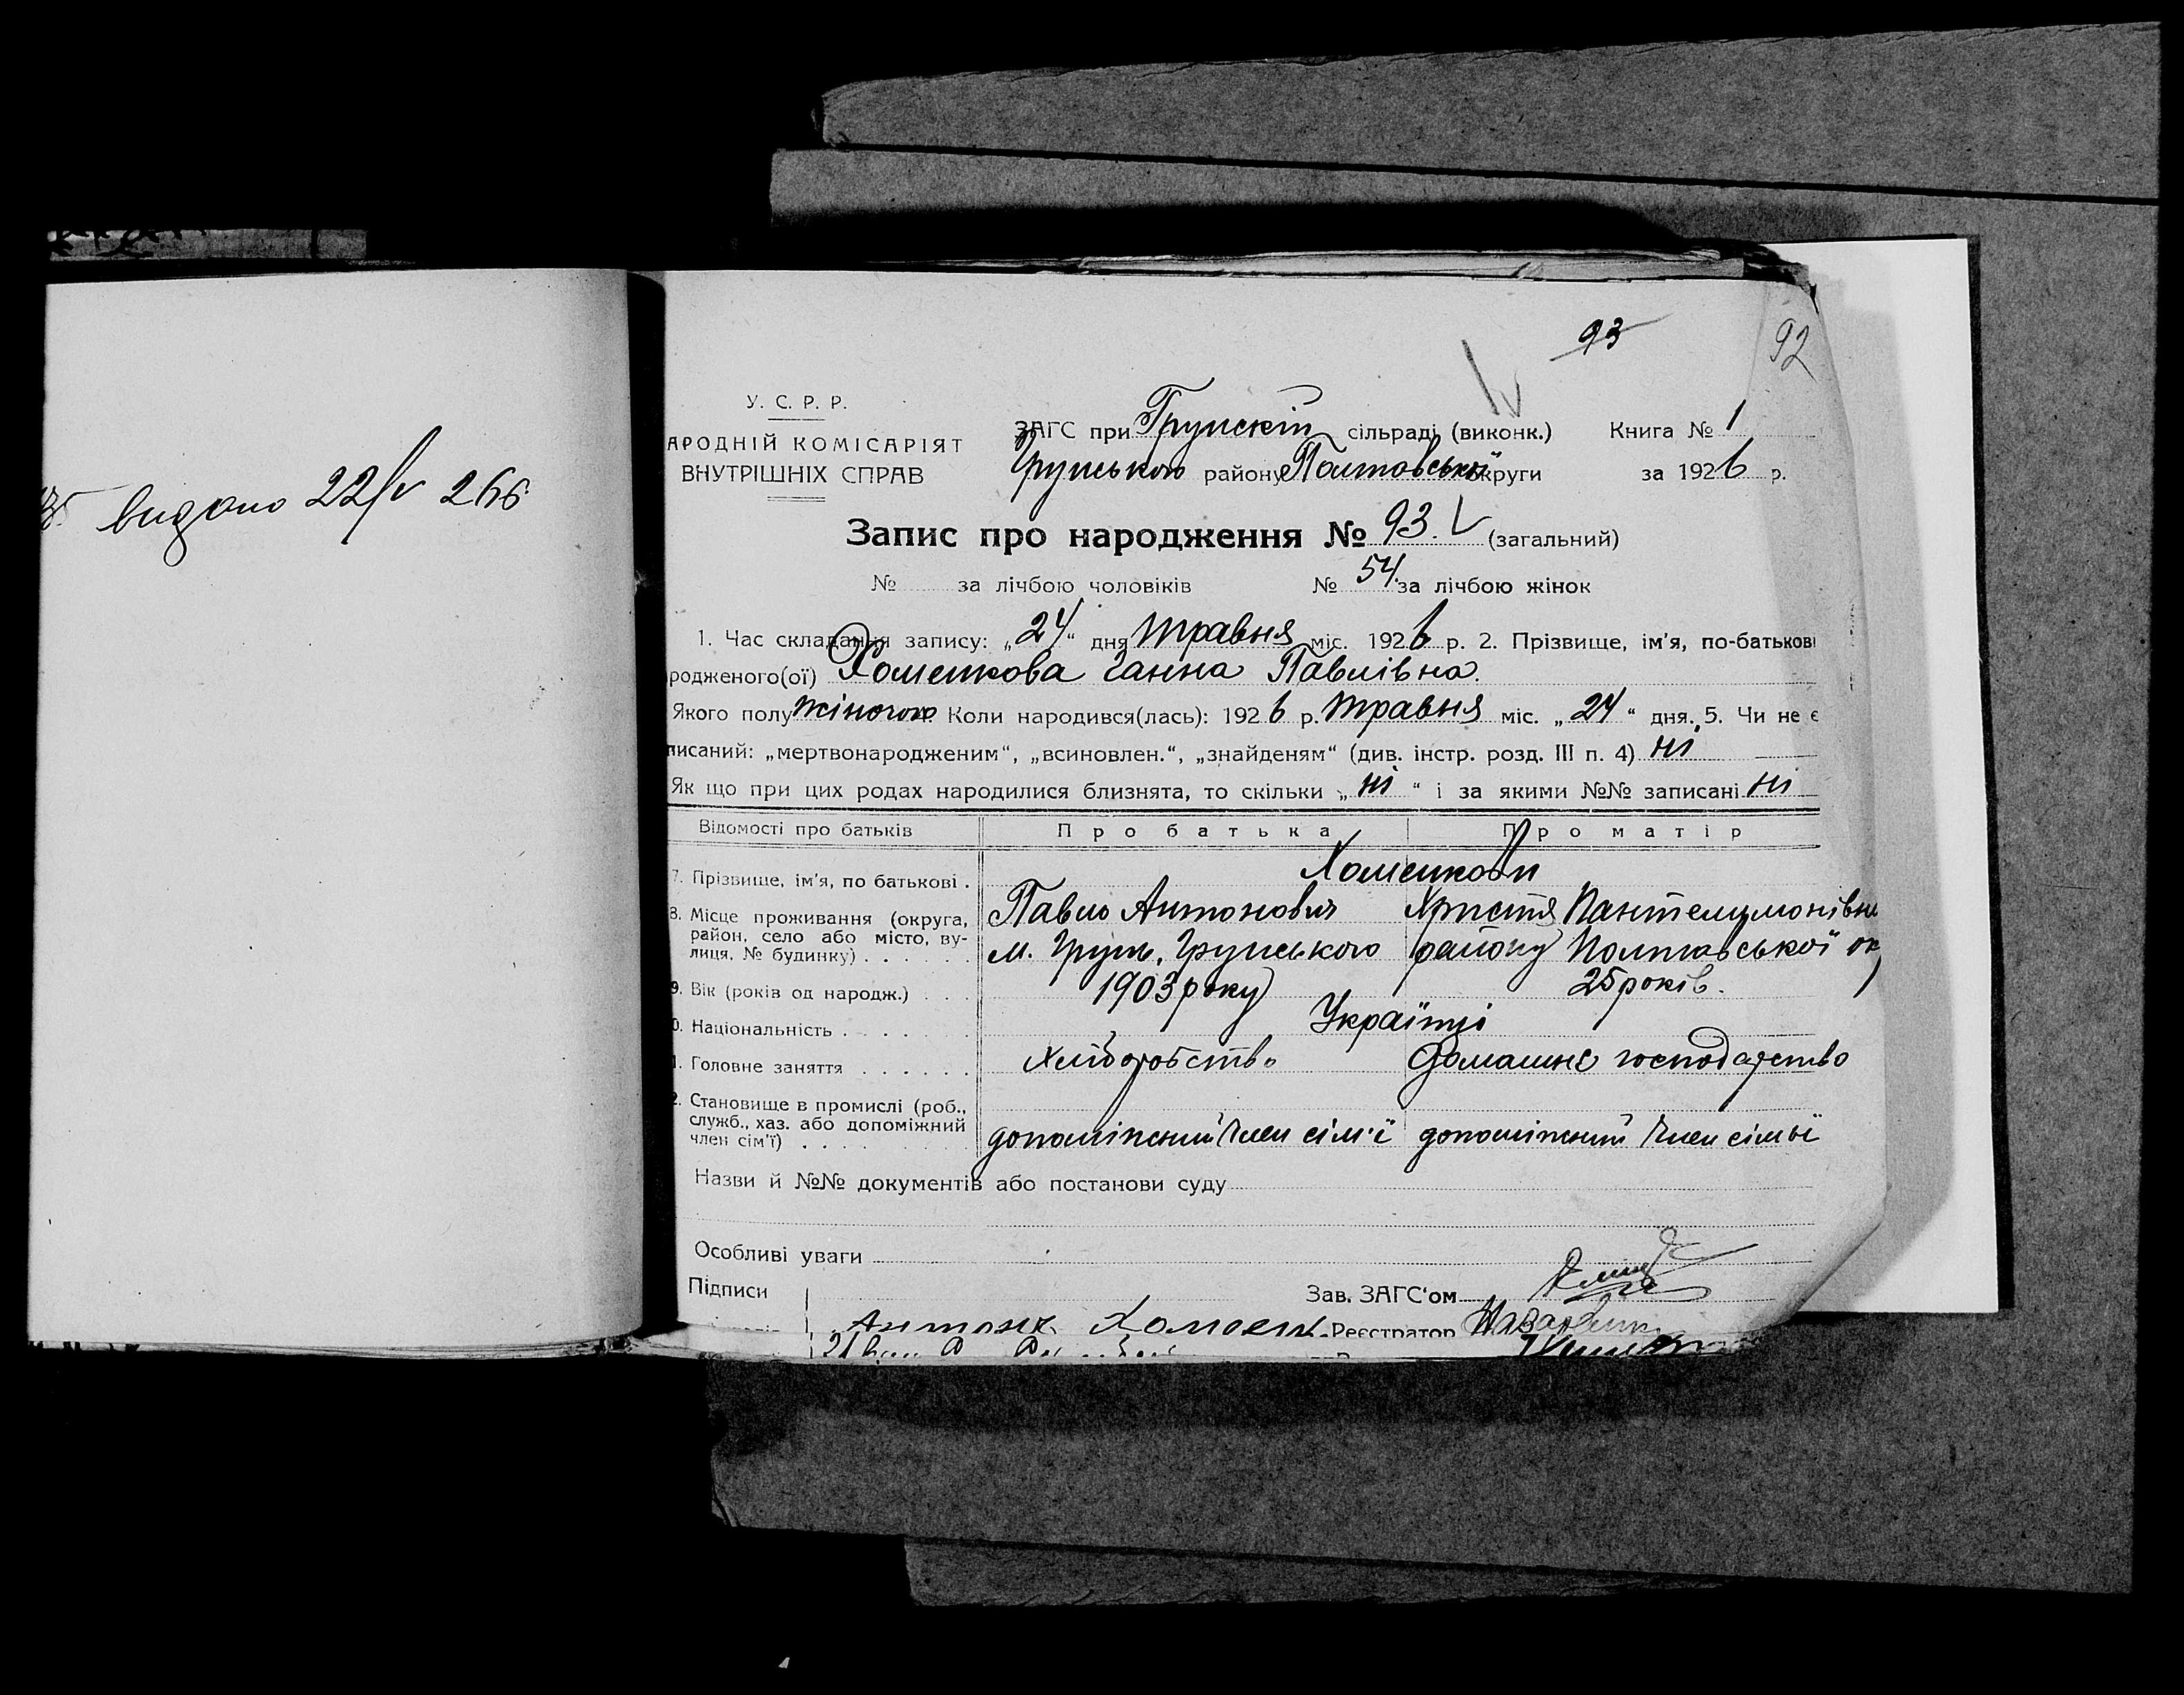 видано 22/V 26б
93
92
У. С. Р. Р.
АРОДНІЙ КОМІСАРІЯТ
ВНУТРІШНІХ СПРАВ
ЗАГС при Грунскій сільраді (виконк.) Книга № 1
Грунського району Полтавської округи за 1926 р.
Запис про народження № 93. (загальний)
№ за лічбою чоловіків № 54. за лічбою жінок
1. Час складання запису: „24“ дня травня міс. 1926 р. 2. Прізвище, ім'я, по-батькові
родженого(ої) Хоменкова Ганна Павлівна.
Якого полу жіночого Коли народився(лась): 1926 р. травня міс. „24“ дня. 5. Чи не є
писаний: „мертвонародженим“, „всиновлен.“, „знайденям“ (див. інстр. розд. III п. 4) ні
Як що при цих родах народилися близнята, то скільки „ні“ і за якими №№ записані ні
Відомості про батьків Про батька Про матір
7. Прізвище, ім'я, по батькові . Хоменкови
Павло Антонович Христя Пантелимонівна
8. Місце проживання (округа, район, село або місто, ву-
лиця, № будинку) . . . . . . м. Грунь, Грунського району Полтавської ок
9. Вік (років од народж.) . . . 1903 року 25 років.
0. Національність . . . . Українці
1. Головне заняття . . . . . . Хліборобство Домашнє господарство
2. Становище в промислі (роб.,
служб., хаз. або допоміжний
член сім'ї) . . . . допоміжний член сім'ї допоміжний член сімьї
Назви й №№ документів або постанови суду
Особливі уваги
Підписи Зав. ЗАГС'ом
Антонъ Хоменк Реєстратор